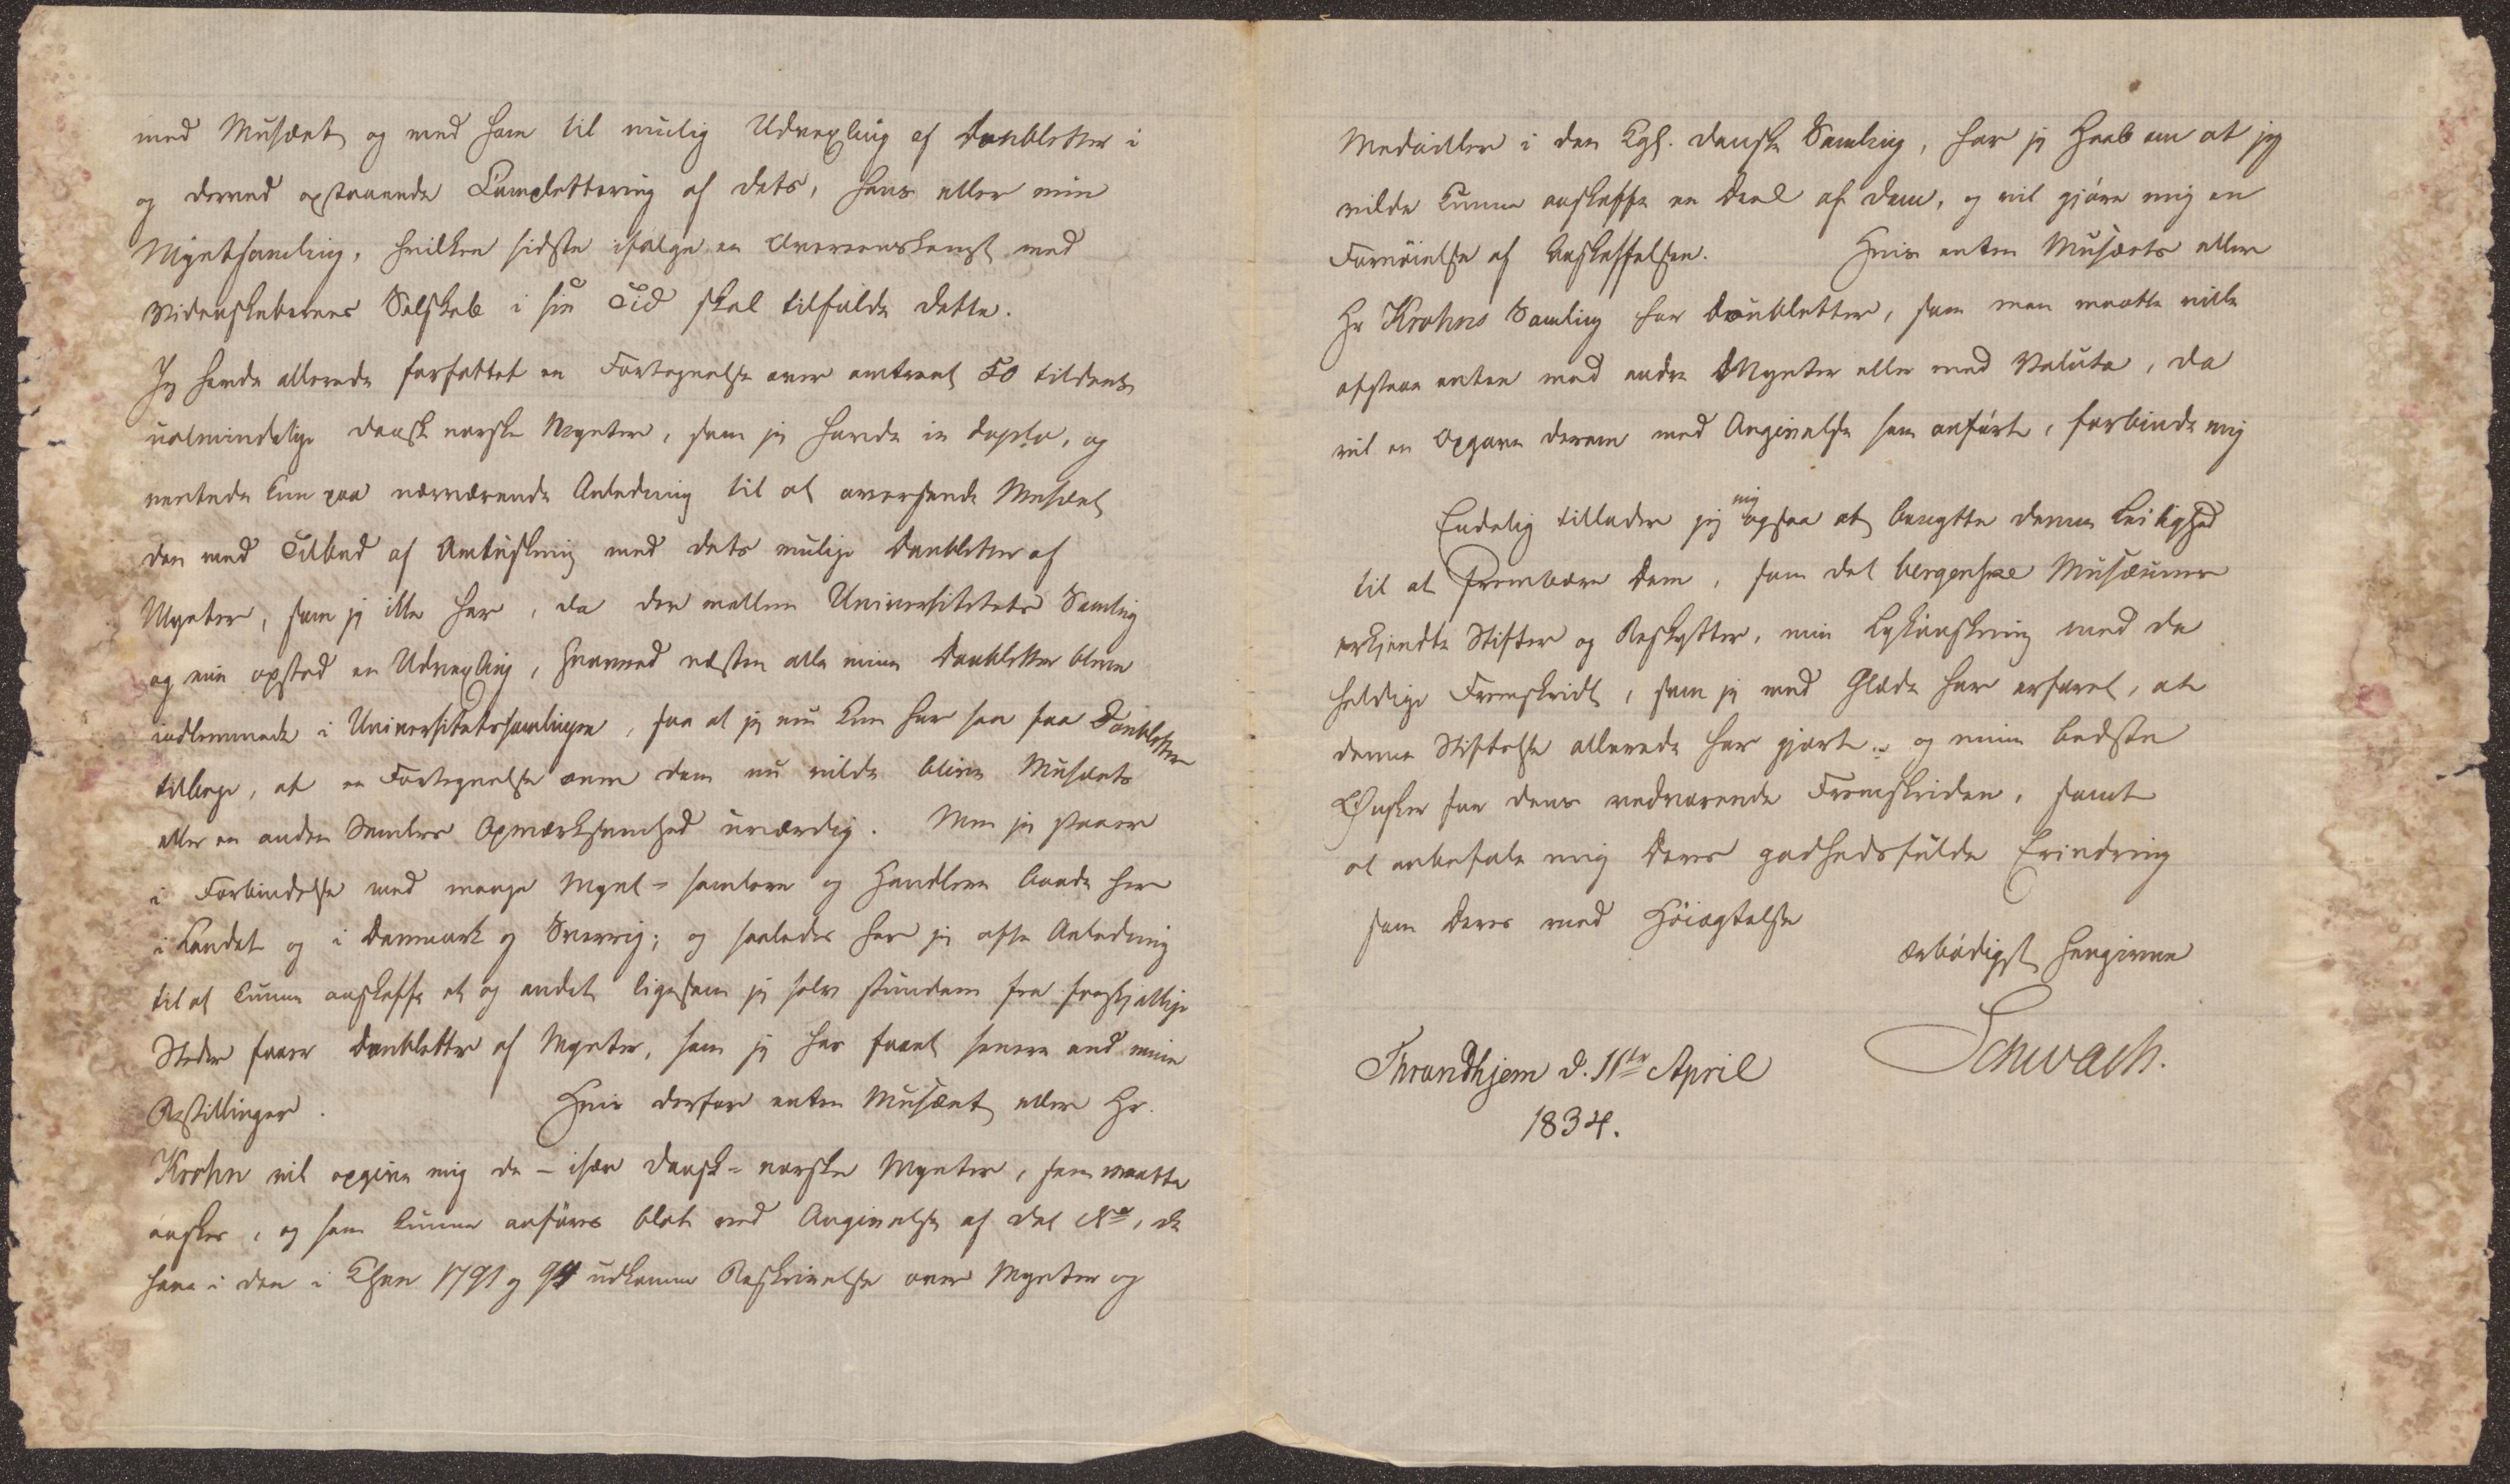 med Musæet og med ham til mulig Udvexling af Doubletter i
og derved opstaaende Complettering af dets, hans eller min
Myntsamling, hvilken sidste ifølge en Overeenskomst med
Videnskabernes Selskab i sin Tid skal tilfalde dette.
Jeg havde allerede forfattet en Fortegnelse over omtrent 50 tildeels
ualmindelige dansk norske Mynter, som jeg havde in duplo, og
ventede kun paa nærværende Anledning til at oversende Musæet
den med Tilbud af Ombytning med dets mulige Doubletter af
Mynter, som jeg ikke har, da der mellem Universitetets Samling
og min opstod en Udvexling, hvorved næsten alle mine Doubletter bleve
indlemmede i Universitetssamlingen, saa at jeg nu kun har saa faa Doubletter
tilbage, at en Fortegnelse over dem nu vilde blive Musæets
eller en anden Samlers Opmærksomhed uværdig. Men jeg staaer
i Forbindelse med mange Mynt-samlere og Handlere baade her
i Landet og i Danmark og Sverrig; og saaledes har jeg ofte Anledning
til at kunne anskaffe et og andet ligesom jeg selv stundom fra forskjellige
Steder faaer Doubletter af Mynter, som jeg har faaet senere end mine
Bestillinger. Hvis derfor enten Musæet eller Hr.
Krohn vil opgive mig de - især dansk-norske Mynter, som maatte
ønskes, og som kunne anføres blot ved Angivelse af det No, de
have i den i Khvn 1791 og 94 udkomne Beskrivelse over Mynter og
Medailler i den Kgl. danske Samling, har jeg Haab om at jeg
vilde kunne anskaffe en Deel af dem, og vil gjøre mig en
Fornøielse af Anskaffelsen. Hvis enten Musæets eller
Hr Krohns Samling har Doubletter, som man maatte ville
afstaae enten mod andre Mynter eller mod Valuta, da
vil en Opgave derom med Angivelse som anført, forbinde mig
Endelig tillader jeg mig ogsaa at benytte denne Leilighed
til at frembære Dem, som det bergenske Musæums
erkjendte Stifter og Beskytter, min Lykønskning med de
heldige Fremskridt, som jeg med Glæde har erfaret, at
denne Stiftelse allerede har gjort og mine bedste
Ønsker for dens vedvarende Fremskriden, samt
at anbefale mig Deres godhedsfulde Erindring
som Deres med Høiagtelse
ærbødigst hengivne
Schwach.
Throndhjem d. 11te April
1834.